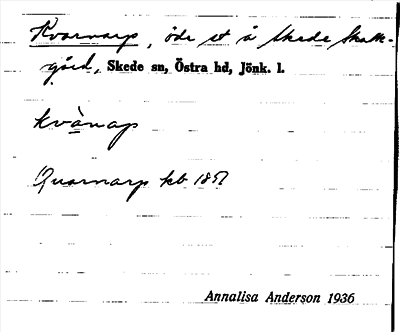 Kvarnarp, öde st å Skede Skatte-
gård, Skede sn, Östra hd, Jönk. l.
kvànap
Quarnarp kb 1857
Annalisa Anderson 1936